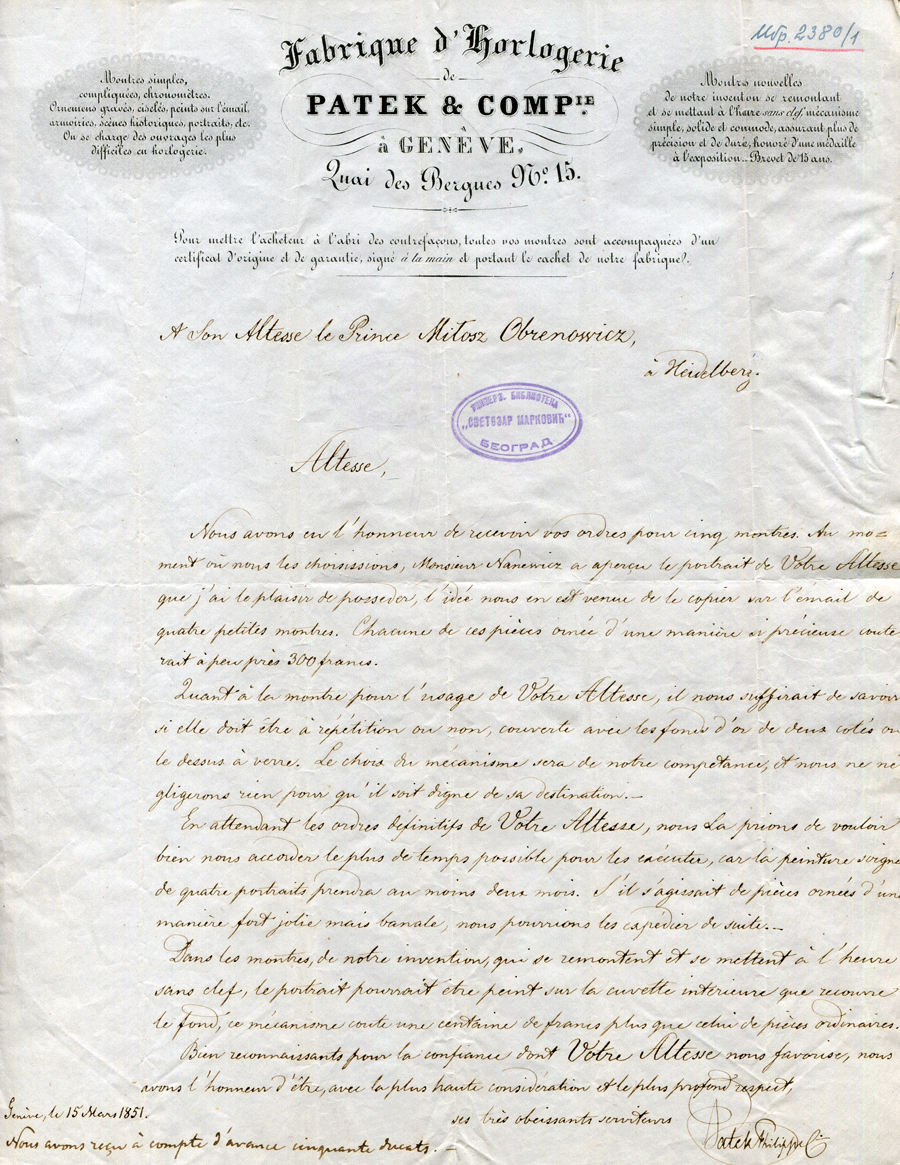 Fabrique d'Horlogerie
de
PATEK & COMP.IE
à GENÈVE,
Quai des Bergues No. 15.
Мбр. 2380/1
Montres simples,
compliquées, chronomètres.
Ornemens gravés, ciselés, peints sur l'émail,
armoiries, scènes historiques, portraits, etc.
On se charge des ouvrages les plus
difficiles en horlogerie.
Montres nouvelles
de notre invention se remontant
et se mettant à l'heure sans clef, mécanisme
simple, solide et commode, assurant plus de
précision et de duré, honoré d'une médaille
à l'exposition._ Brevet de 15 ans.
Pour mettre l'acheteur à l'abri des contrefaçons, toutes vos montres sont accompagnées d'un
certificat d'origine et de garantie, signé à la main et portant le cachet de notre fabrique.
A Son Altesse le Prince Miłosz Obrenowicz,
à Heidelberg.
УНИВЕРЗ. БИБЛИОТЕКА
„СВЕТОЗАР МАРКОВИЋ“
БЕОГРАД
Altesse,
Nous avons eu l'honneur de recevoir vos ordres pour cinq montres. Au mo=
ment où nous les choisissions, Monsieur Nanewicz a aperçu le portrait de Votre Altesse
que j'ai le plaisir de posseder, l'idée nous en est venue de le copier sur l'émail de
quatre petites montres. Chacune de ces pièces ornée d'une manière si précieuse coute
rait à peu près 300 francs.
Quant à la montre pour l'usage de Votre Altesse, il nous suffirait de savoir
si elle doit être à répétition ou non, couverte avec les fonds d'or de deux cotés ou
le dessus à verre. Le choix du mécanisme sera de notre compétance, et nous ne né
gligerons rien pour qu'il soit digne de sa destination._
En attendant les ordres définitifs de Votre Altesse, nous La prions de vouloir
bien nous accorder le plus de temps possible pour les exécuter, car la peinture soigné
de quatre portraits prendra au moins deux mois. S'il s'agissait de pièces ornées d'une
manière fort jolie mais banale, nous pourrions les expedier de suite._
Dans les montres, de notre invention, qui se remontent et se mettent à l'heure
sans clef, le portrait pourrait être peint sur la cuvette intérieure que recouvre
le fond, ce mécanisme coute une centaine de francs plus que celui de pièces ordinaires.
Bien reconnaissants pour la confiance dont Votre Altesse nous favorise, nous
avons l'honneur d'être, avec la plus haute considération et le plus profond respect,
ses très obeissants serviteurs
Patek Philippe & Cie
Genève, le 15 Mars 1851.
Nous avons reçu à compte d'avance cinquante ducats._